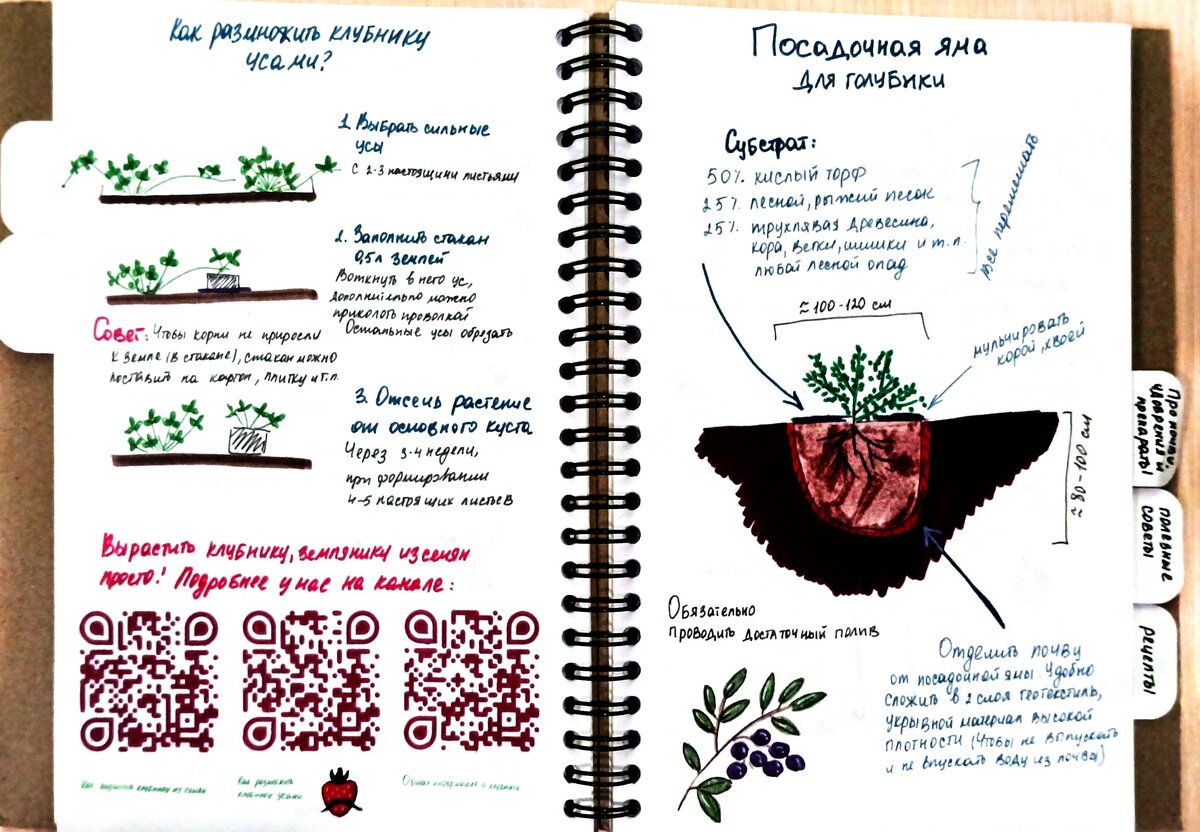 Как размножить клубнику
усами?
1. Выбрать сильные
усы
с 2-3 настоящими листьями
2. Заполнить стакан
0,5л землей
Воткнуть в него ус,
дополнительно можно
приколоть проволкой
Остальные усы обрезать
Совет: Чтобы корни не приросли
к земле (в стакане), стакан можно
поставить на картон, плитку и т.п.
3. Отсечь растение
от основного куста
Через 3-4 недели,
при формировании
4-5 настоящих листьев
Вырастить клубнику, землянику из семян
просто! Подробнее у нас на канале:
Как вырастить клубнику из семян
Как размножить
клубнику усами
Общая информация о клубнике
Посадочная яма
для голубики
Субстрат:
50% кислый торф
25% лесной, рыжий песок
25% трухлявая древесина,
кора, ветки, шишки и т.п.
любой лесной опад
Все перемешать
≈100-120 см
мульчировать
корой, хвоей
≈80-100 см
Обязательно
проводить достаточный полив
Отделить почву
от посадочной ямы. Удобно
сложить в 2 слоя геотекстиль,
укрывной материал высокой
плотности (Чтобы не выпускать
и не впускать воду из почвы)
Про почву,
удобрения и
препараты
полезные
советы
рецепты